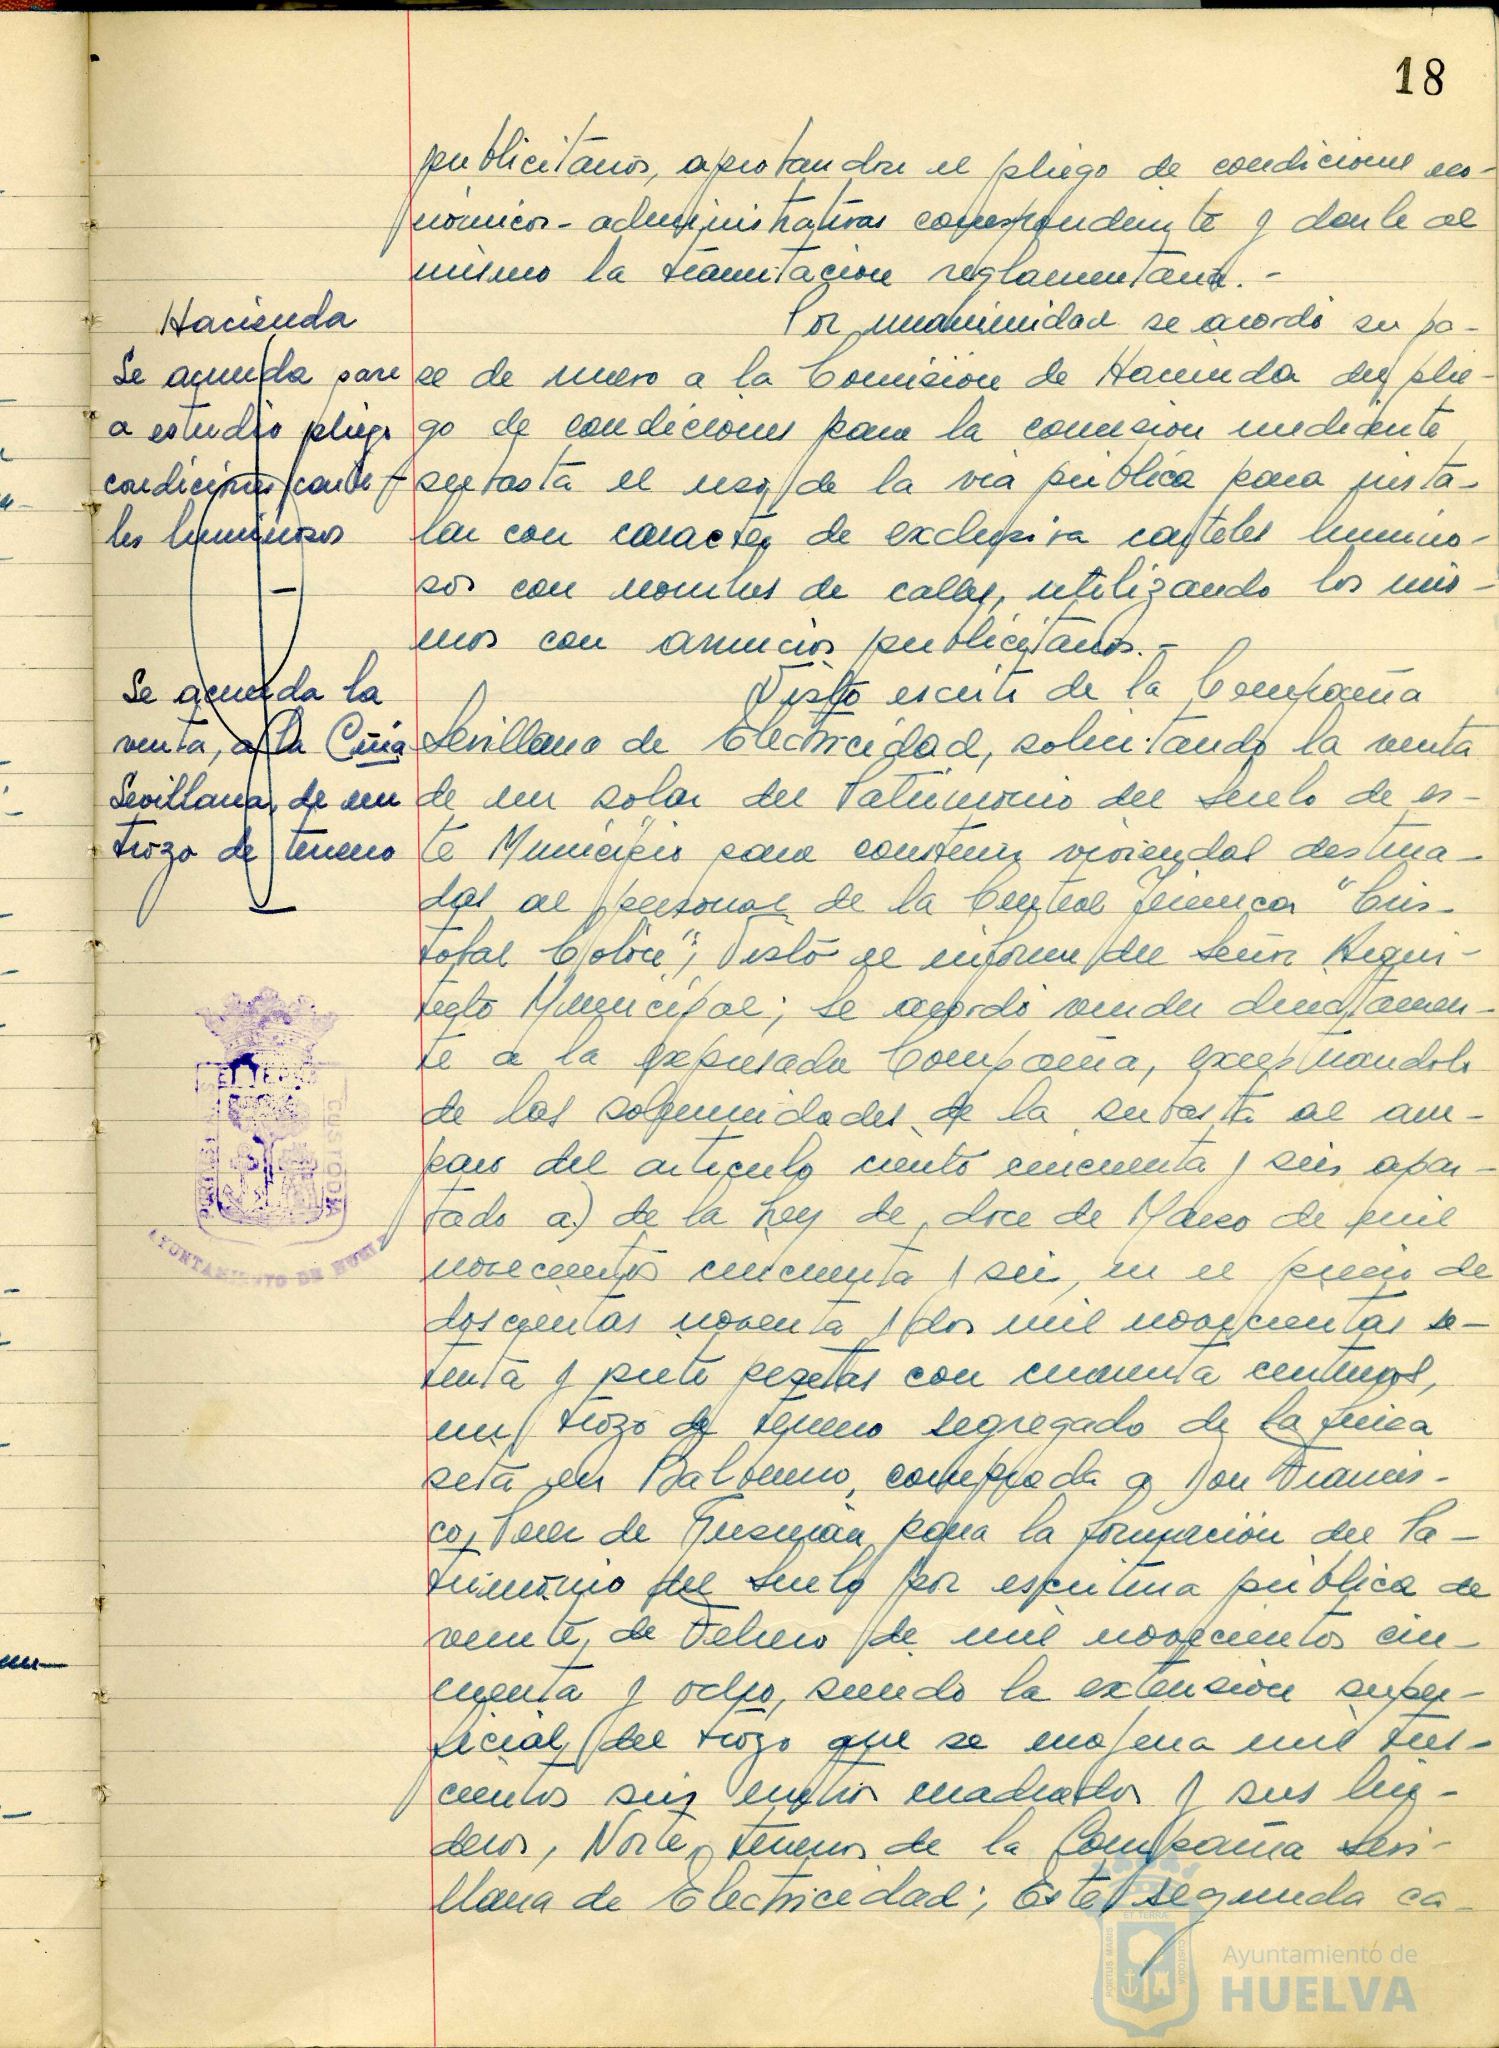 18
publicitarios, aprobandose el pliego de condiciones eco-
nómicos-administrativas correspondiente y darle al
mismo la tramitación reglamentaria.-
Hacienda
Se acuerda pase
a estudio pliego
condiciones carte-
les luminosos
Por unanimidad se acordó su pa-
se de nuevo a la Comisión de Hacienda del plie-
go de condiciones para la concesión mediante
subasta el uso de la vía pública para insta-
lar con caracter de exclusiva carteles lumino-
sos con nombres de calles, utilizando los mis-
mos con anuncios publicitarios.-
Se acuerda la
venta, a la Cñía
Sevillana, de un
trozo de terreno
Visto escrito de la Compañía
Sevillana de Electricidad, solicitando la venta
de un solar del Patrimonio del Suelo de es-
te Municipio para construir viviendas destina-
das al personal de la Central Térmica "Cris-
tobal Colón"; Visto el informe del Señor Arqui-
tecto Municipal; Se acordó vender directamen-
te a la expresada Compañía, exceptuandola
de las solemnidades de la subasta al am-
paro del artículo ciento cincuenta y seis apar-
tado a) de la Ley de doce de Mayo de mil
novecientos cincuenta y seis, en el precio de
doscientas noventa y dos mil novecientas se-
tenta y siete pesetas con cincuenta centimos,
un trozo de terreno segregado de la finca
sita en Balbueno, comprada a Don Francis-
co Pérez de Guzmán para la formación del Pa-
trimonio del Suelo por escritura pública de
veinte de Febrero de mil novecientos cin-
cuenta y ocho, siendo la extensión super-
ficial del trozo que se enajena mil tres-
cientos seis metros cuadrados y sus lin-
deros, Norte, terrenos de la Compañía Sevi-
llana de Electricidad; Este segunda ca-
PORTUS MARIS ET TERRAE CUSTODIA
AYUNTAMIENTO DE HUELVA
Ayuntamiento de
HUELVA